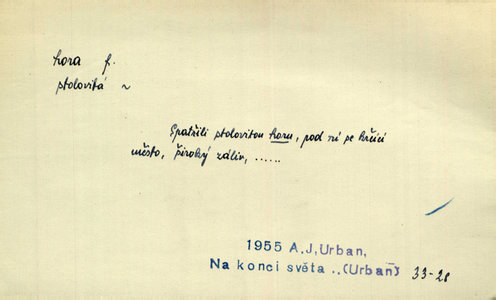 hora f.
stolovitá ~
Spatřili stolovitou horu, pod ní se krčící
město, široký záliv, ......
1955 A.J.Urban,
Na konci světa ..(Urban) 33-28